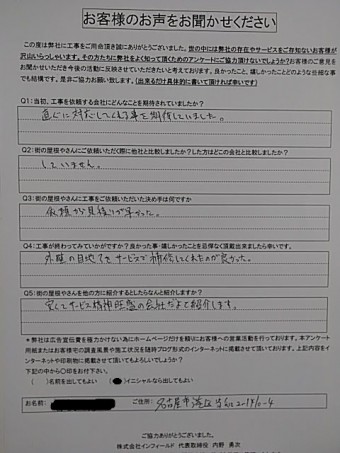 お客様のお声をお聞かせください
この度は弊社に工事をご用命頂き誠にありがとうございました。世の中には弊社の存在やサービスをご存知ないお客様が
沢山いらっしゃいます。その方たちに弊社をよく知って頂くためのアンケートにご協力頂けないでしょうか?お客様のご意見を
お聞かせいただき今後の活動に反映させていただきたいと考えております。良かったこと、嬉しかったことどのような些細な事
でも結構です。是非ご協力お願い致します。(出来るだけ具体的に書いて頂ければ幸いです)
Q1:当初、工事を依頼する会社にどんなことを期待されていましたか?
直ぐに対応してくれる事を期待していました。
Q2:街の屋根やさんにご依頼いただく際に他社と比較しましたか?した方はどこの会社と比較しましたか?
していません。
Q3:街の屋根やさんに工事をご依頼いただいた決め手は何ですか
依頼から見積りが早かった。
Q4:工事が終わってみていかがですか?良かった事・嬉しかったことを忌憚なく頂戴出来ましたら幸いです。
外壁の目地をサービスで補修してくれたのが良かった。
Q5:街の屋根やさんを他の方に紹介するとしたらなんと紹介しますか?
安くてサービス精神旺盛の会社だよと紹介します。
*弊社は広告宣伝費を極力かけない為にホームページだけを頼りにお客様への営業活動を行っております。本アンケート
用紙またはお客様宅の調査風景や施工状況を随時ブログ形式のインターネットに掲載させて頂いております。上記内容をイ
ンターネットや印刷物に掲載させて頂いてもよろしいでしょうか?
下記の中から○印をお付け下さい。
( )名前を出してもよい ( )イニシャルなら出してもよい
お名前: ご住所: 名古屋市港区
ご協力ありがとうございました。
株式会社インフィールド 代表取締役 内野 勇次